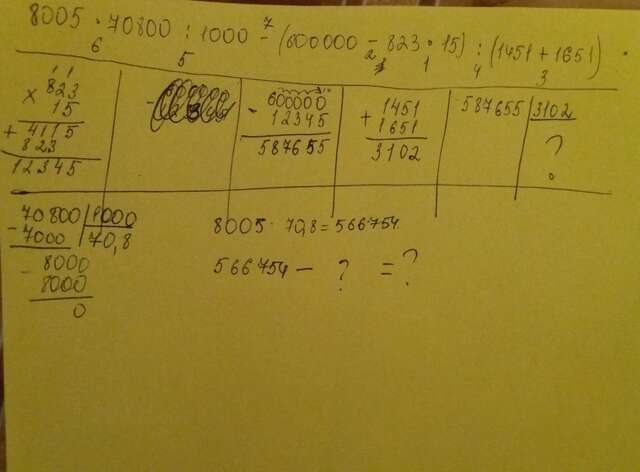 8005 · 70800 : 1000 - (600000 - 823 · 15) : (1451 + 1651)
6 5 7 2 1 4 3
1 1
823
× 15
+ 4115
823
12345
600000
- 12345
587655
1451
+ 1651
3102
587655 | 3102
?
70800 | 1000
- 7000 | 70,8
- 8000
8000
0
8005 · 70,8 = 566754
566754 - ? = ?